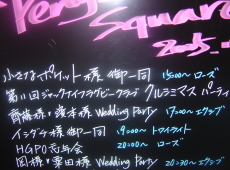 Square
2005
小さなポケット様 御一同 15:00〜 ローズ
第11回 ジャックナイフラグビークラブ クルシミマス パーティ
齊藤様・濱本様 Wedding Party 17:00〜 エクラブ
イシグラ様 御一同 19:00〜 トワイライト
20:00〜 ローズ
岡様・粟田様 Wedding Party 20:30〜 エクラブ